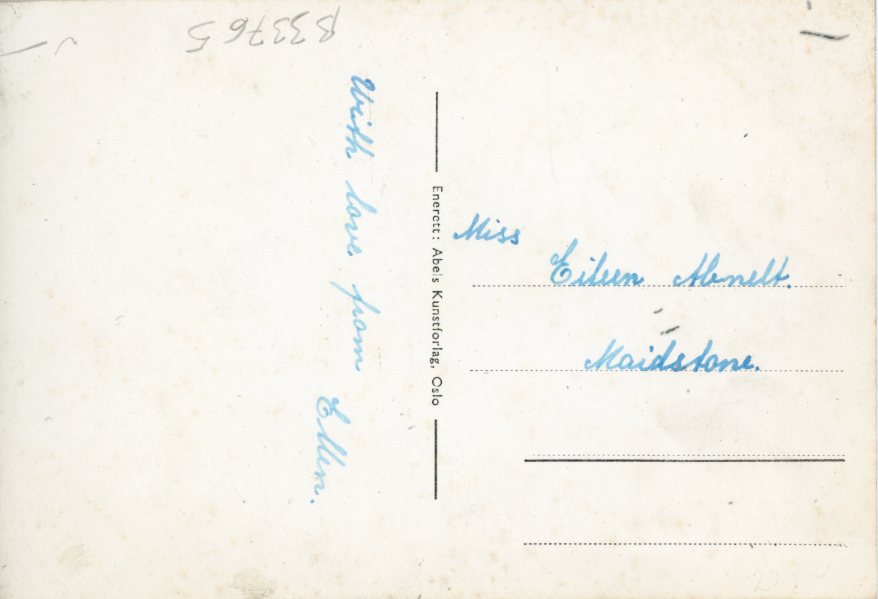 B33765
With love from Ellen.
Enerett: Abels Kunstforlag, Oslo
Miss
Eileen
Maidstone.